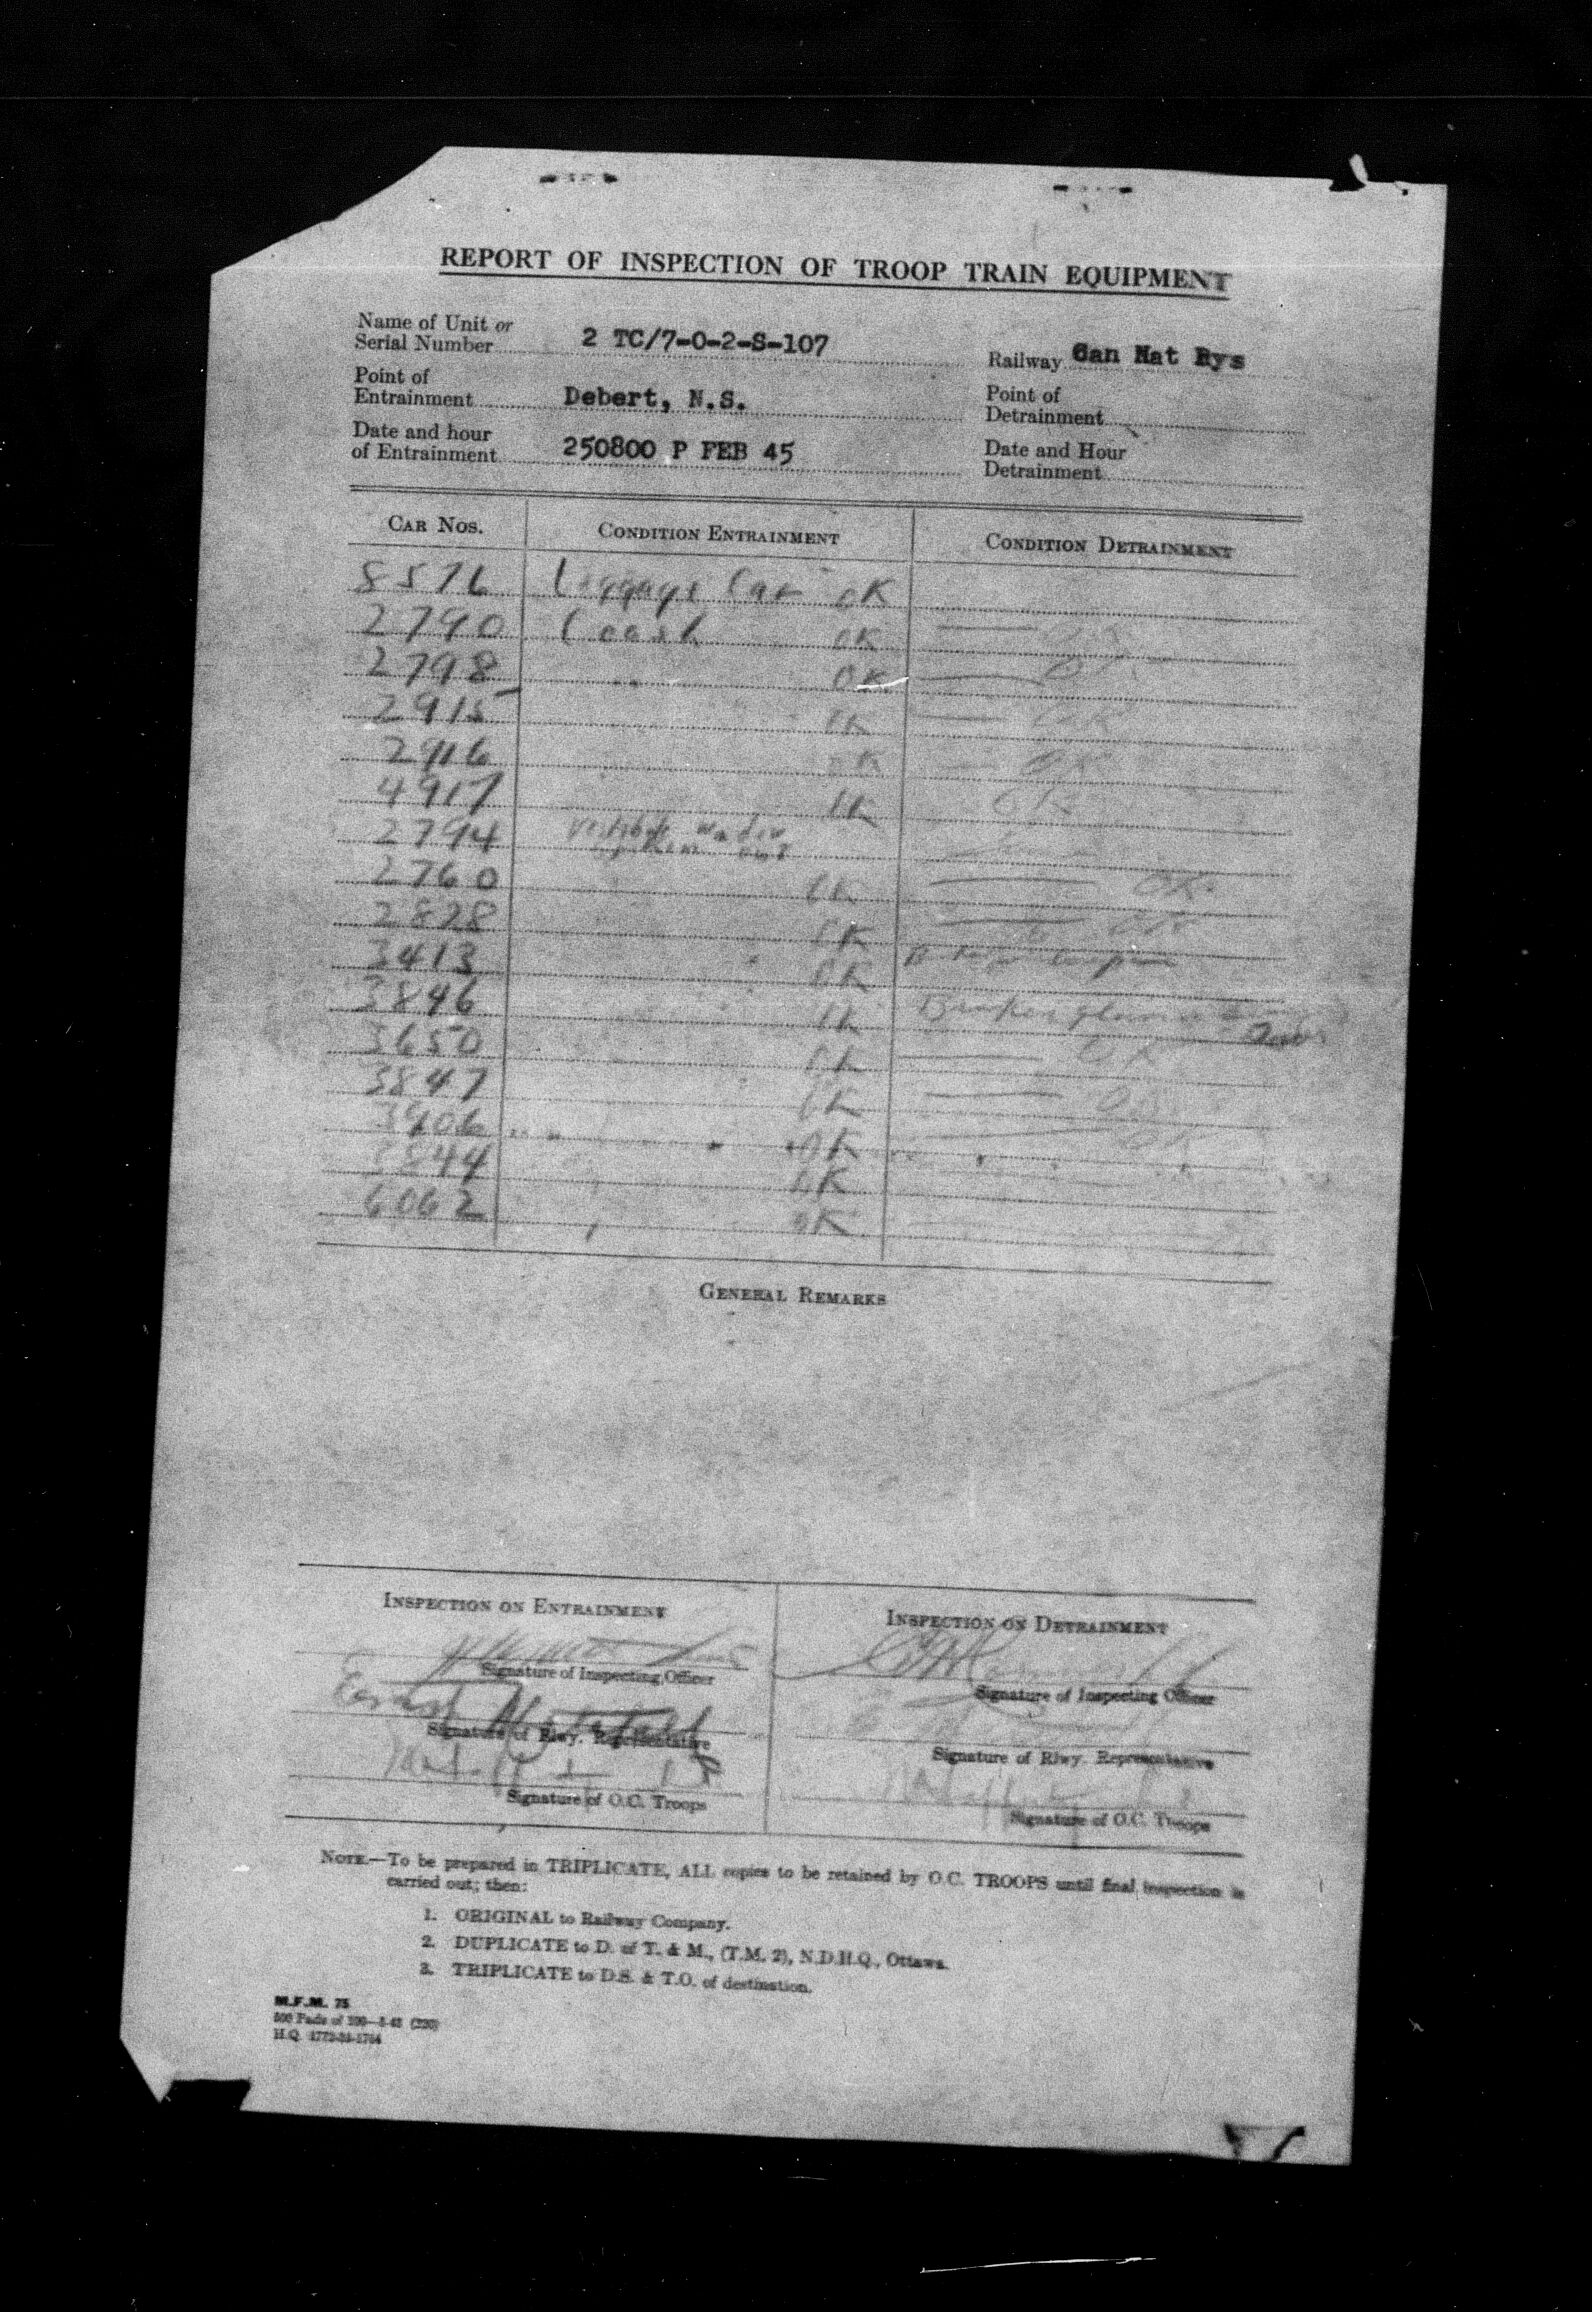 REPORT OF INSPECTION OF TROOP TRAIN EQUIPMENT
Name of Unit or
Serial Number 2 TC/7-0-2-S-107
Railway Can Nat Rys
Point of
Entrainment Debert, N.S.
Point of
Detrainment
Date and hour
of Entrainment 250800 P FEB 45
Date and Hour
Detrainment
CAR NOS. CONDITION ENTRAINMENT CONDITION DETRAINMENT
8576 Car OK
2790 Coach OK
2798 " OK OK
2915 OK OK
2916 OK OK
4917 OK OK
2794
2760 OK OK
2828 OK OK
3413 OK
3846 OK Broken
3650 OK OK
3847 OK OK
3906 OK OK
3844 OK
6062 OK
GENERAL REMARKS
INSPECTION ON ENTRAINMENT INSPECTION ON DETRAINMENT
Signature of Inspecting Officer Signature of Inspecting Officer
Signature of Rlwy. Representative Signature of Rlwy. Representative
Signature of O.C. Troops Signature of O.C. Troops
NOTE.—To be prepared in TRIPLICATE, ALL copies to be retained by O.C. TROOPS until final inspection is
carried out; then:
1. ORIGINAL to Railway Company.
2. DUPLICATE to D. of T. & M., (T.M. 2), N.D.H.Q., Ottawa.
3. TRIPLICATE to D.S. & T.O. of destination.
M.F.M. 75
500 Pads of 100
H.Q. 1772-39-1764